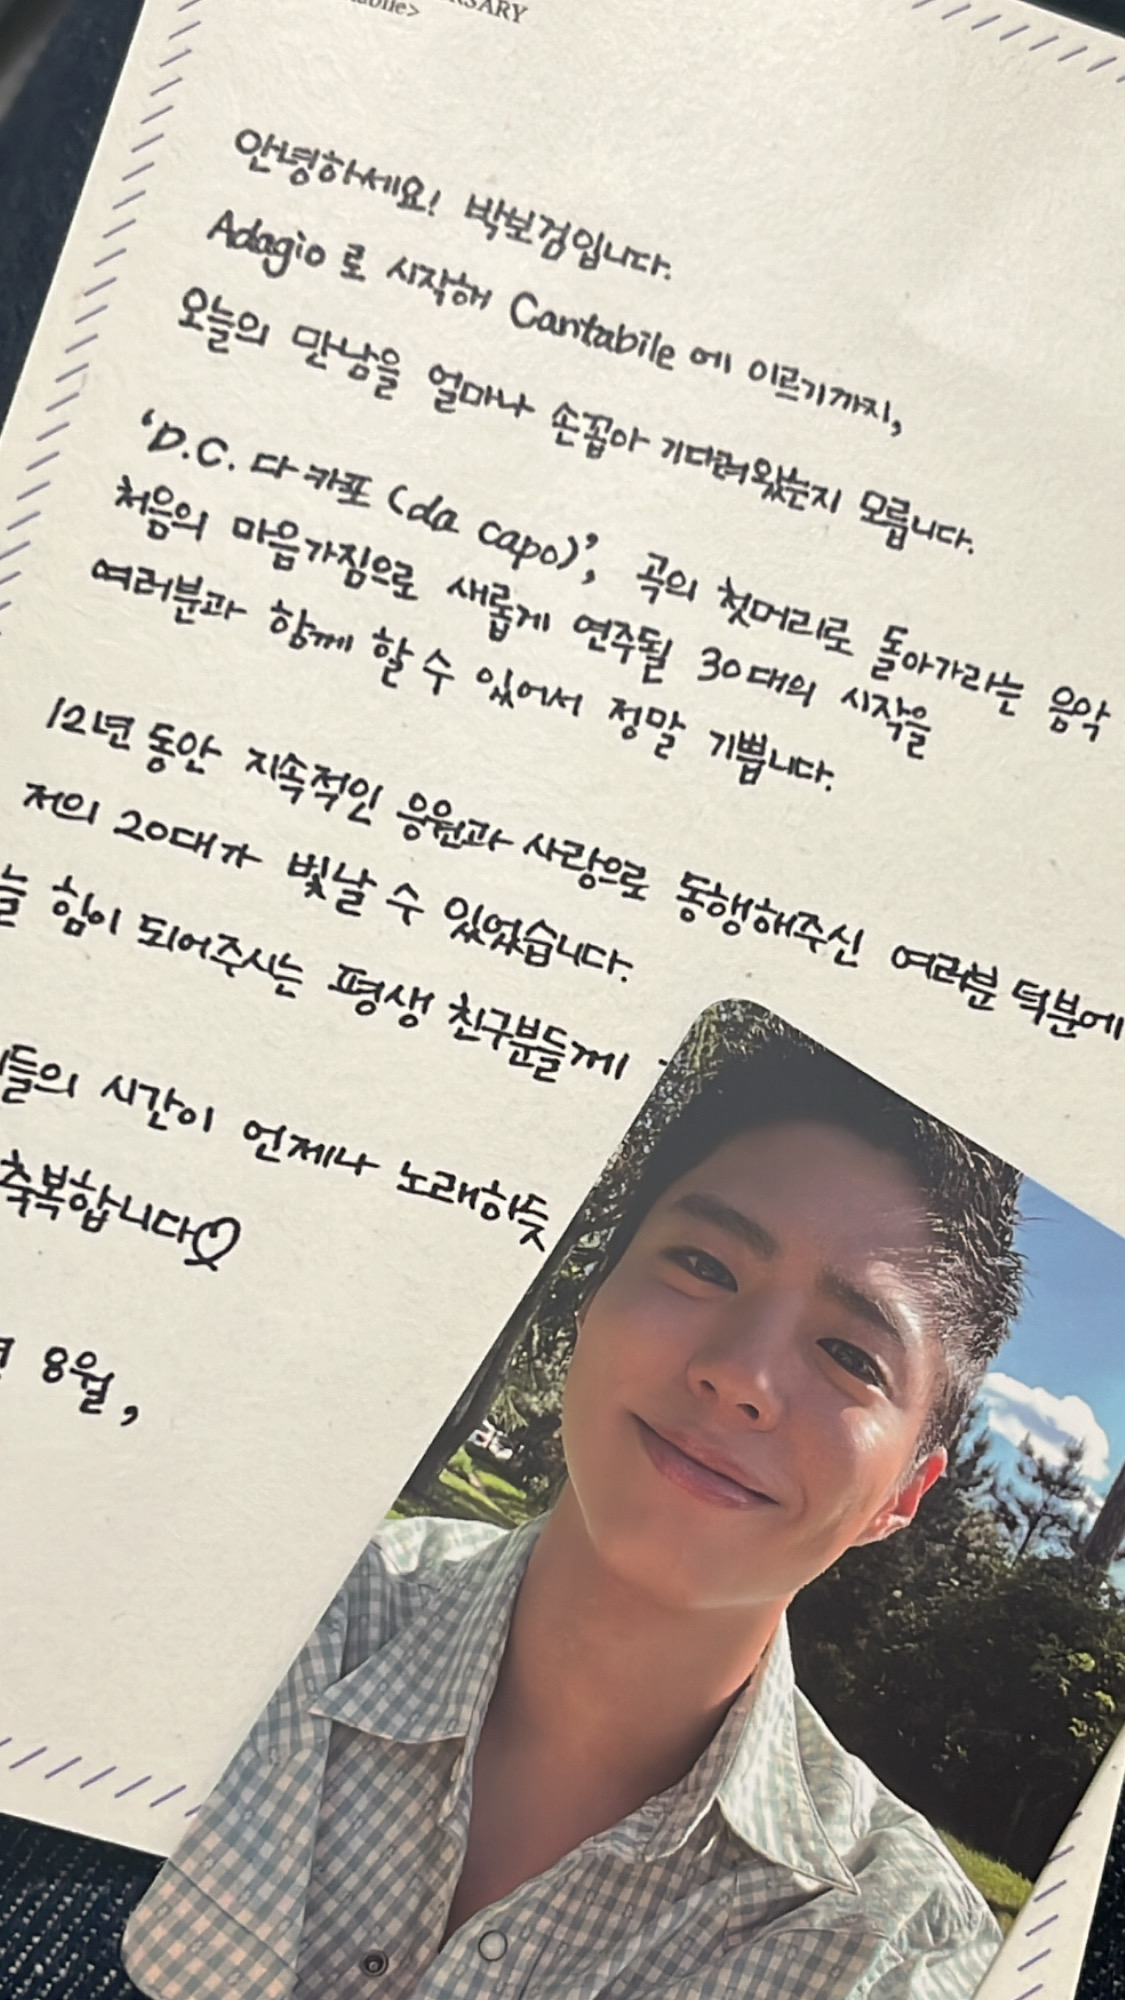 안녕하세요! 박보검입니다.
Adagio 로 시작해 Cantabile 에 이르기까지,
오늘의 만남을 얼마나 손꼽아 기다려왔는지 모릅니다.
'D.C. 다 카포 (da capo)', 곡의 첫머리로 돌아가라는 음악
처음의 마음가짐으로 새롭게 연주될 30대의 시작을
여러분과 함께 할 수 있어서 정말 기쁩니다.
12년 동안 지속적인 응원과 사랑으로 동행해주신 여러분 덕분에
저의 20대가 빛날 수 있었습니다.
힘이 되어주시는 평생 친구분들께
시간이 언제나 노래하듯
축복합니다♡
8월,